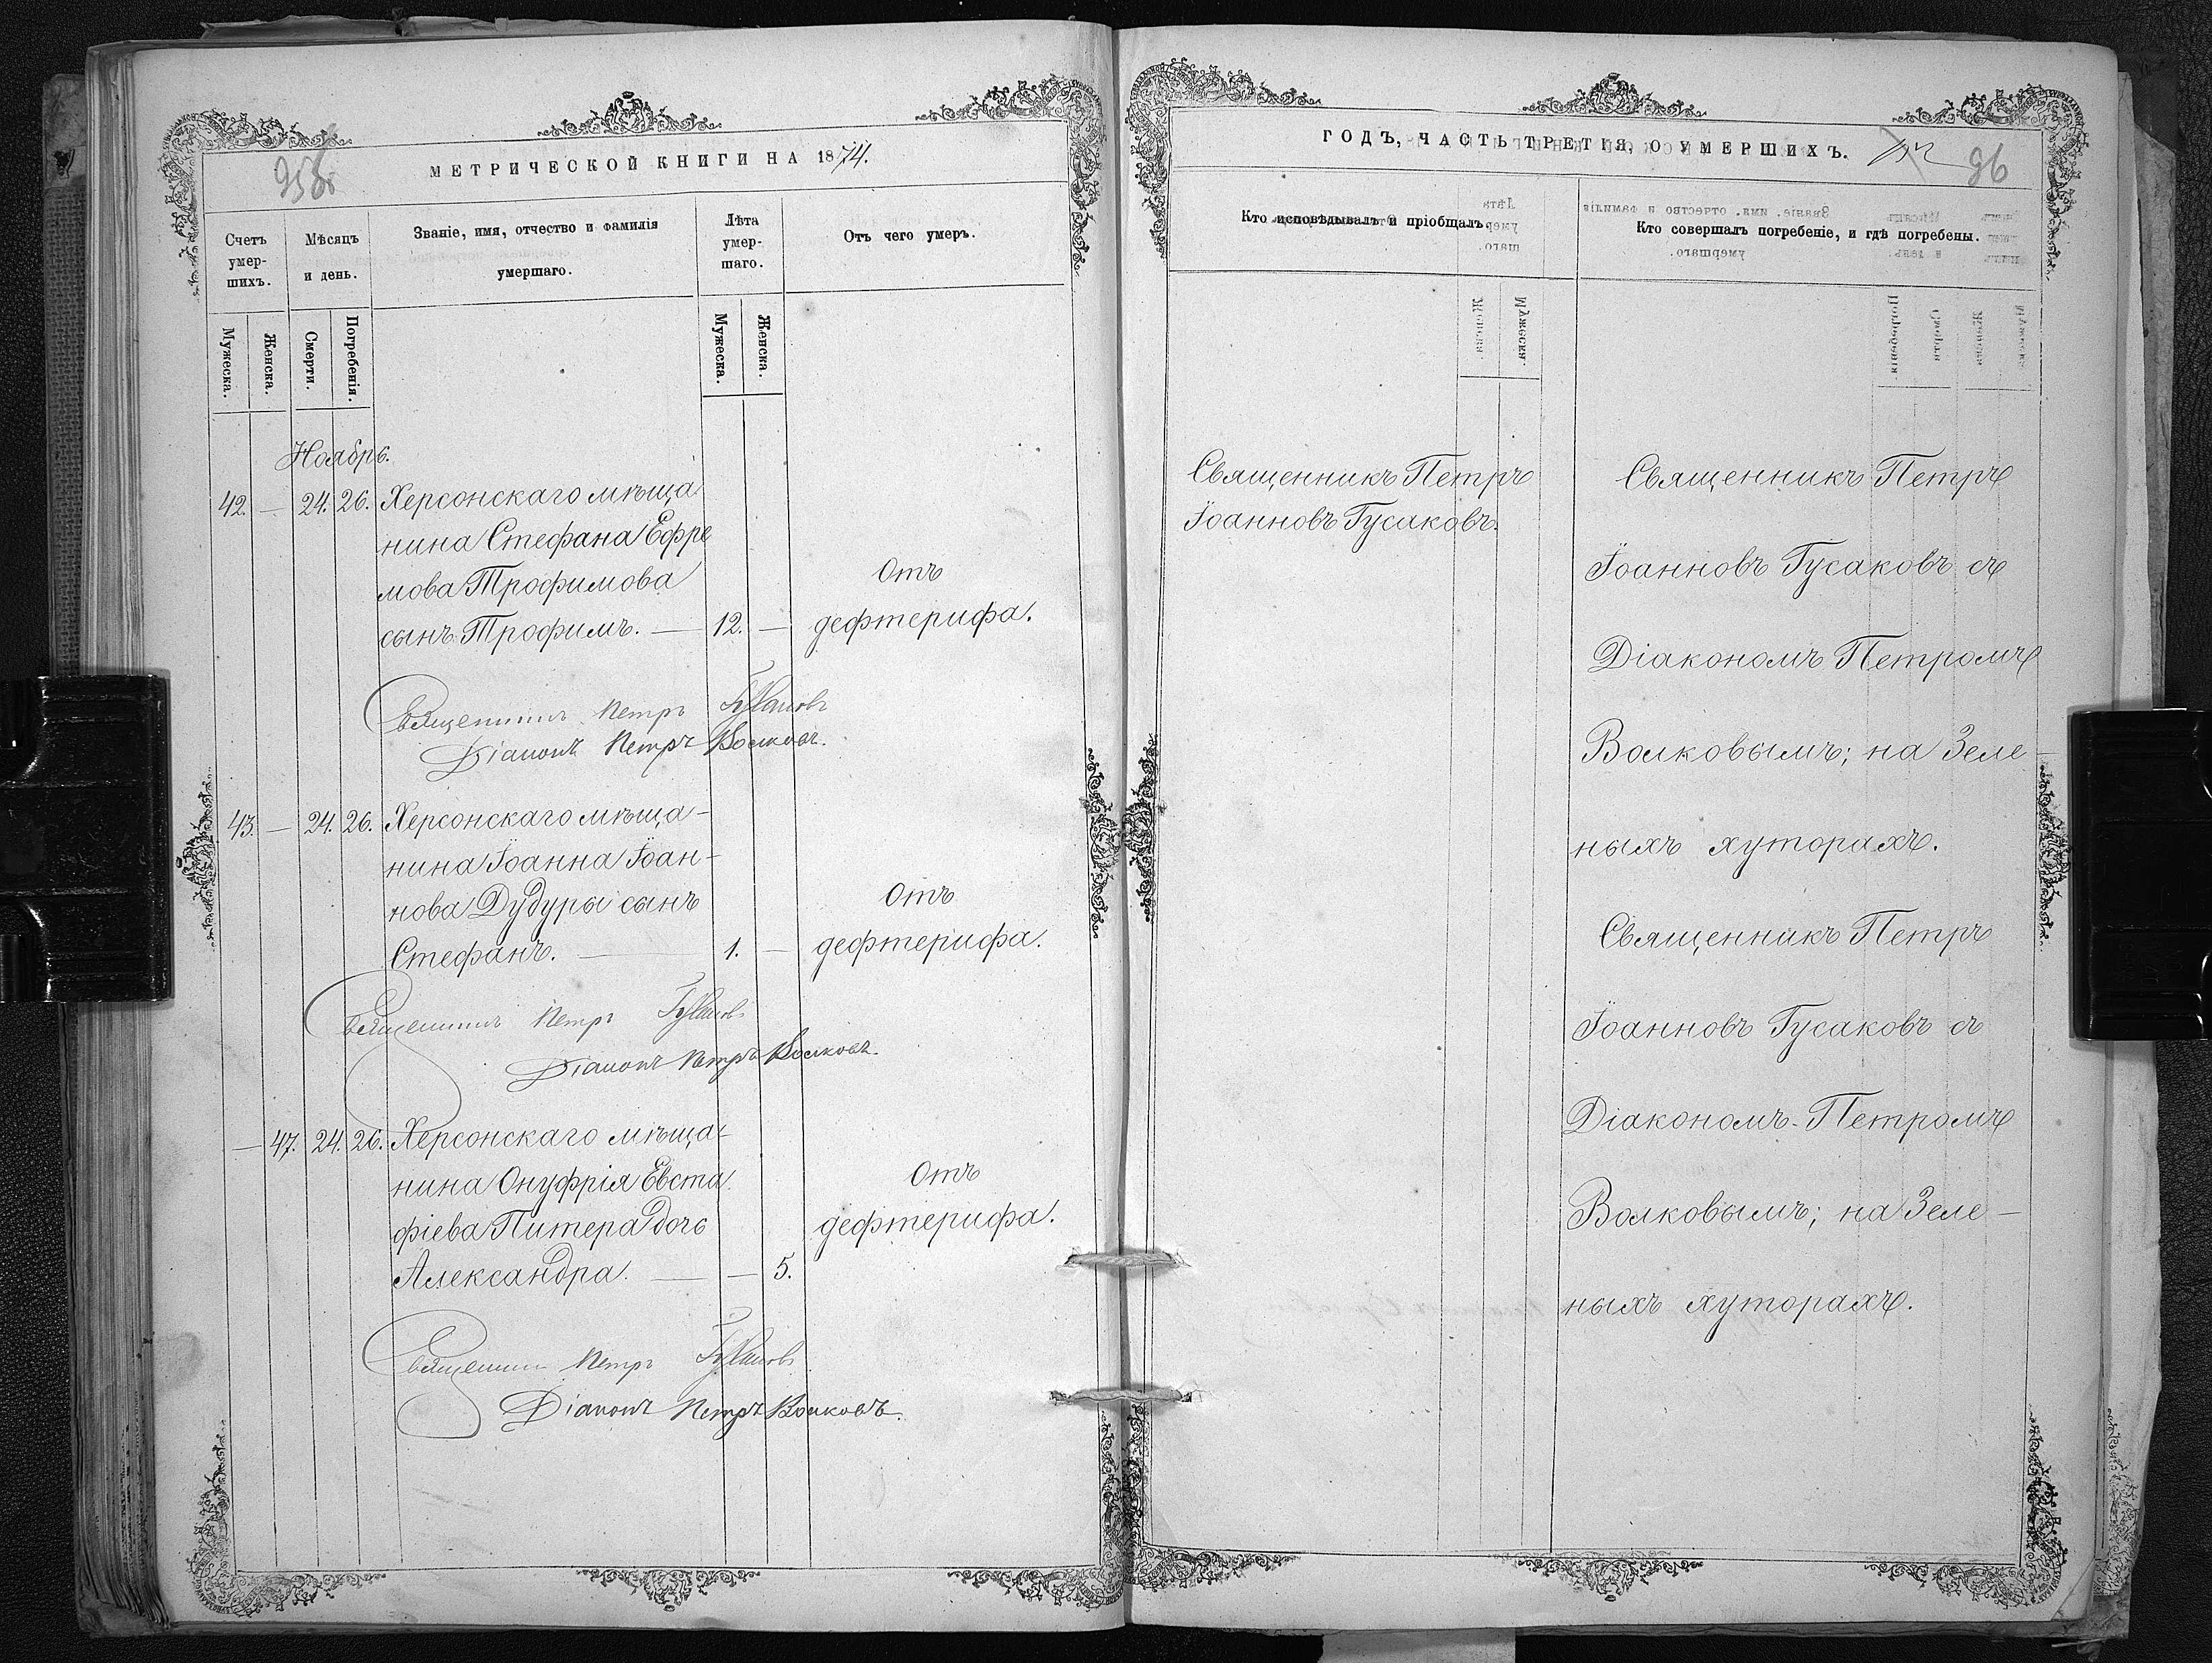 МЕТРИЧЕСКОЙ КНИГИ НА 1874.
Счетъ умер-шихъ.
Мѣсяцъ и день.
Званіе, имя, отчество и фамилія умершаго.
Лѣта умер-шаго.
Отъ чего умеръ.
Мужеска.
Женска.
Смерти.
Погребенія.
Мужеска.
Женска.
Ноябрь.
42. — 24. 26. Херсонскаго мѣща
нина Стефана Ефре
мова Трофимова
сынъ Трофимъ. — 12. — Отъ дефтерифа.
Священникъ Петръ Гусаковъ
Діаконъ Петръ Волковъ.
43. — 24. 26. Херсонскаго мѣща-
нина Іоанна Іоан-
нова Дудуры сынъ
Стефанъ. — 1. — Отъ дефтерифа.
Священникъ Петръ Гусаковъ
Діаконъ Петръ Волковъ.
— 47. 24. 26. Херсонскаго мѣща-
нина Онуфрія Евста
фіева Питера дочь
Александра. — — 5. Отъ дефтерифа.
Священникъ Петръ Гусаковъ
Діаконъ Петръ Волковъ.
ГОДЪ, ЧАСТЬ ТРЕТІЯ, О УМЕРШИХЪ.
96
Кто исповѣдывалъ и пріобщалъ.
Кто совершалъ погребеніе, и гдѣ погребены.
Священникъ Петръ
Іоанновъ Гусаковъ.
Священникъ Петръ
Іоанновъ Гусаковъ съ
Діакономъ Петромъ
Волковымъ; на Зеле-
ныхъ хуторахъ.
Священникъ Петръ
Іоанновъ Гусаковъ съ
Діакономъ Петромъ
Волковымъ; на Зеле-
ныхъ хуторахъ.